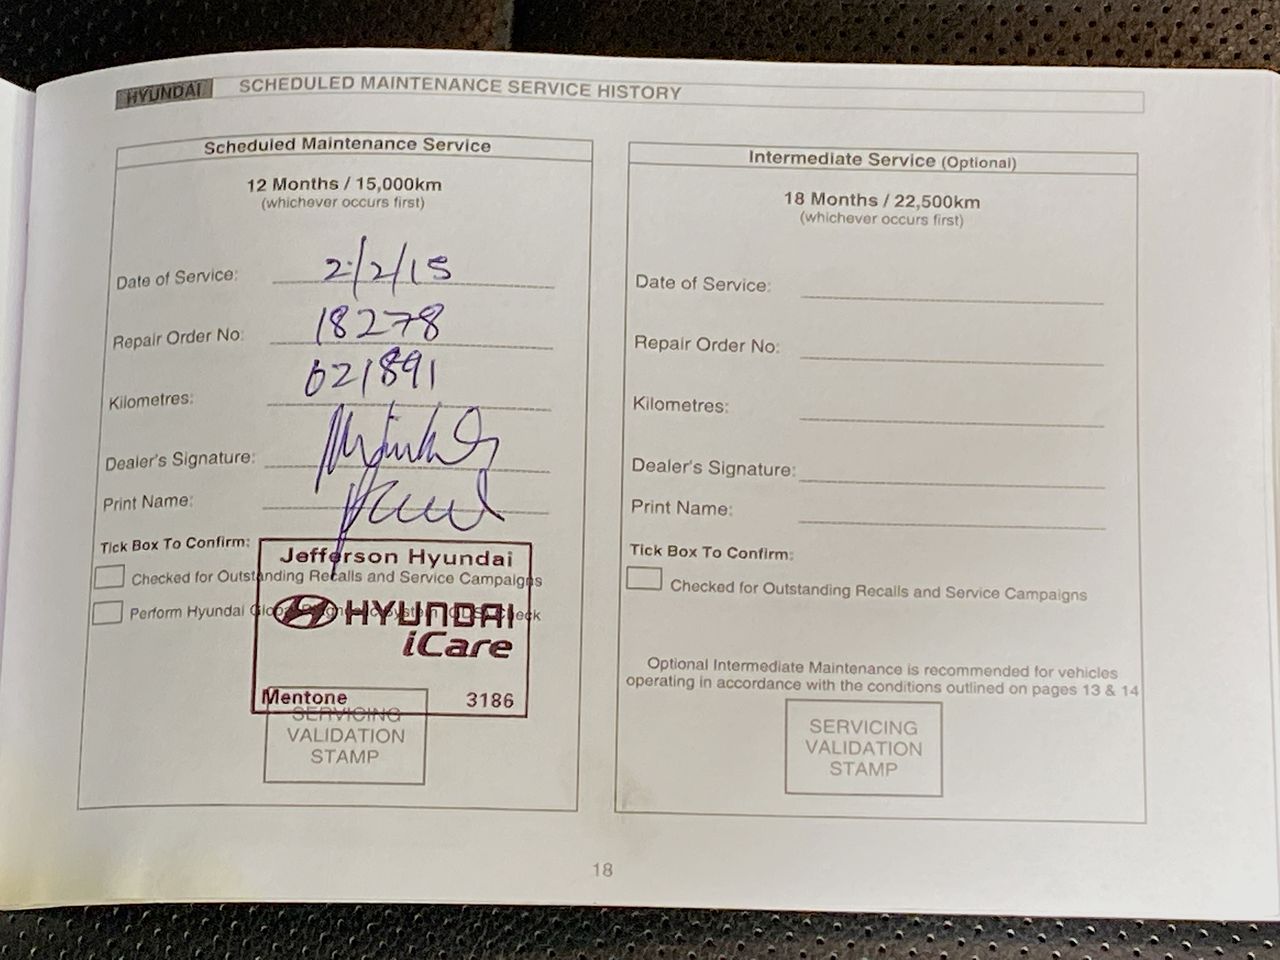 HYUNDAI SCHEDULED MAINTENANCE SERVICE HISTORY
Scheduled Maintenance Service
12 Months / 15,000km
(whichever occurs first)
Date of Service: 2/2/15
Repair Order No: 18278
Kilometres: 021891
Dealer's Signature:
Print Name:
Tick Box To Confirm:
Checked for Outstanding Recalls and Service Campaigns
Perform Hyundai Check
Jefferson Hyundai
HYUNDAI
iCare
Mentone 3186
SERVICING
VALIDATION
STAMP
Intermediate Service (Optional)
18 Months / 22,500km
(whichever occurs first)
Date of Service:
Repair Order No:
Kilometres:
Dealer's Signature:
Print Name:
Tick Box To Confirm:
Checked for Outstanding Recalls and Service Campaigns
Optional Intermediate Maintenance is recommended for vehicles
operating in accordance with the conditions outlined on pages 13 & 14
SERVICING
VALIDATION
STAMP
18